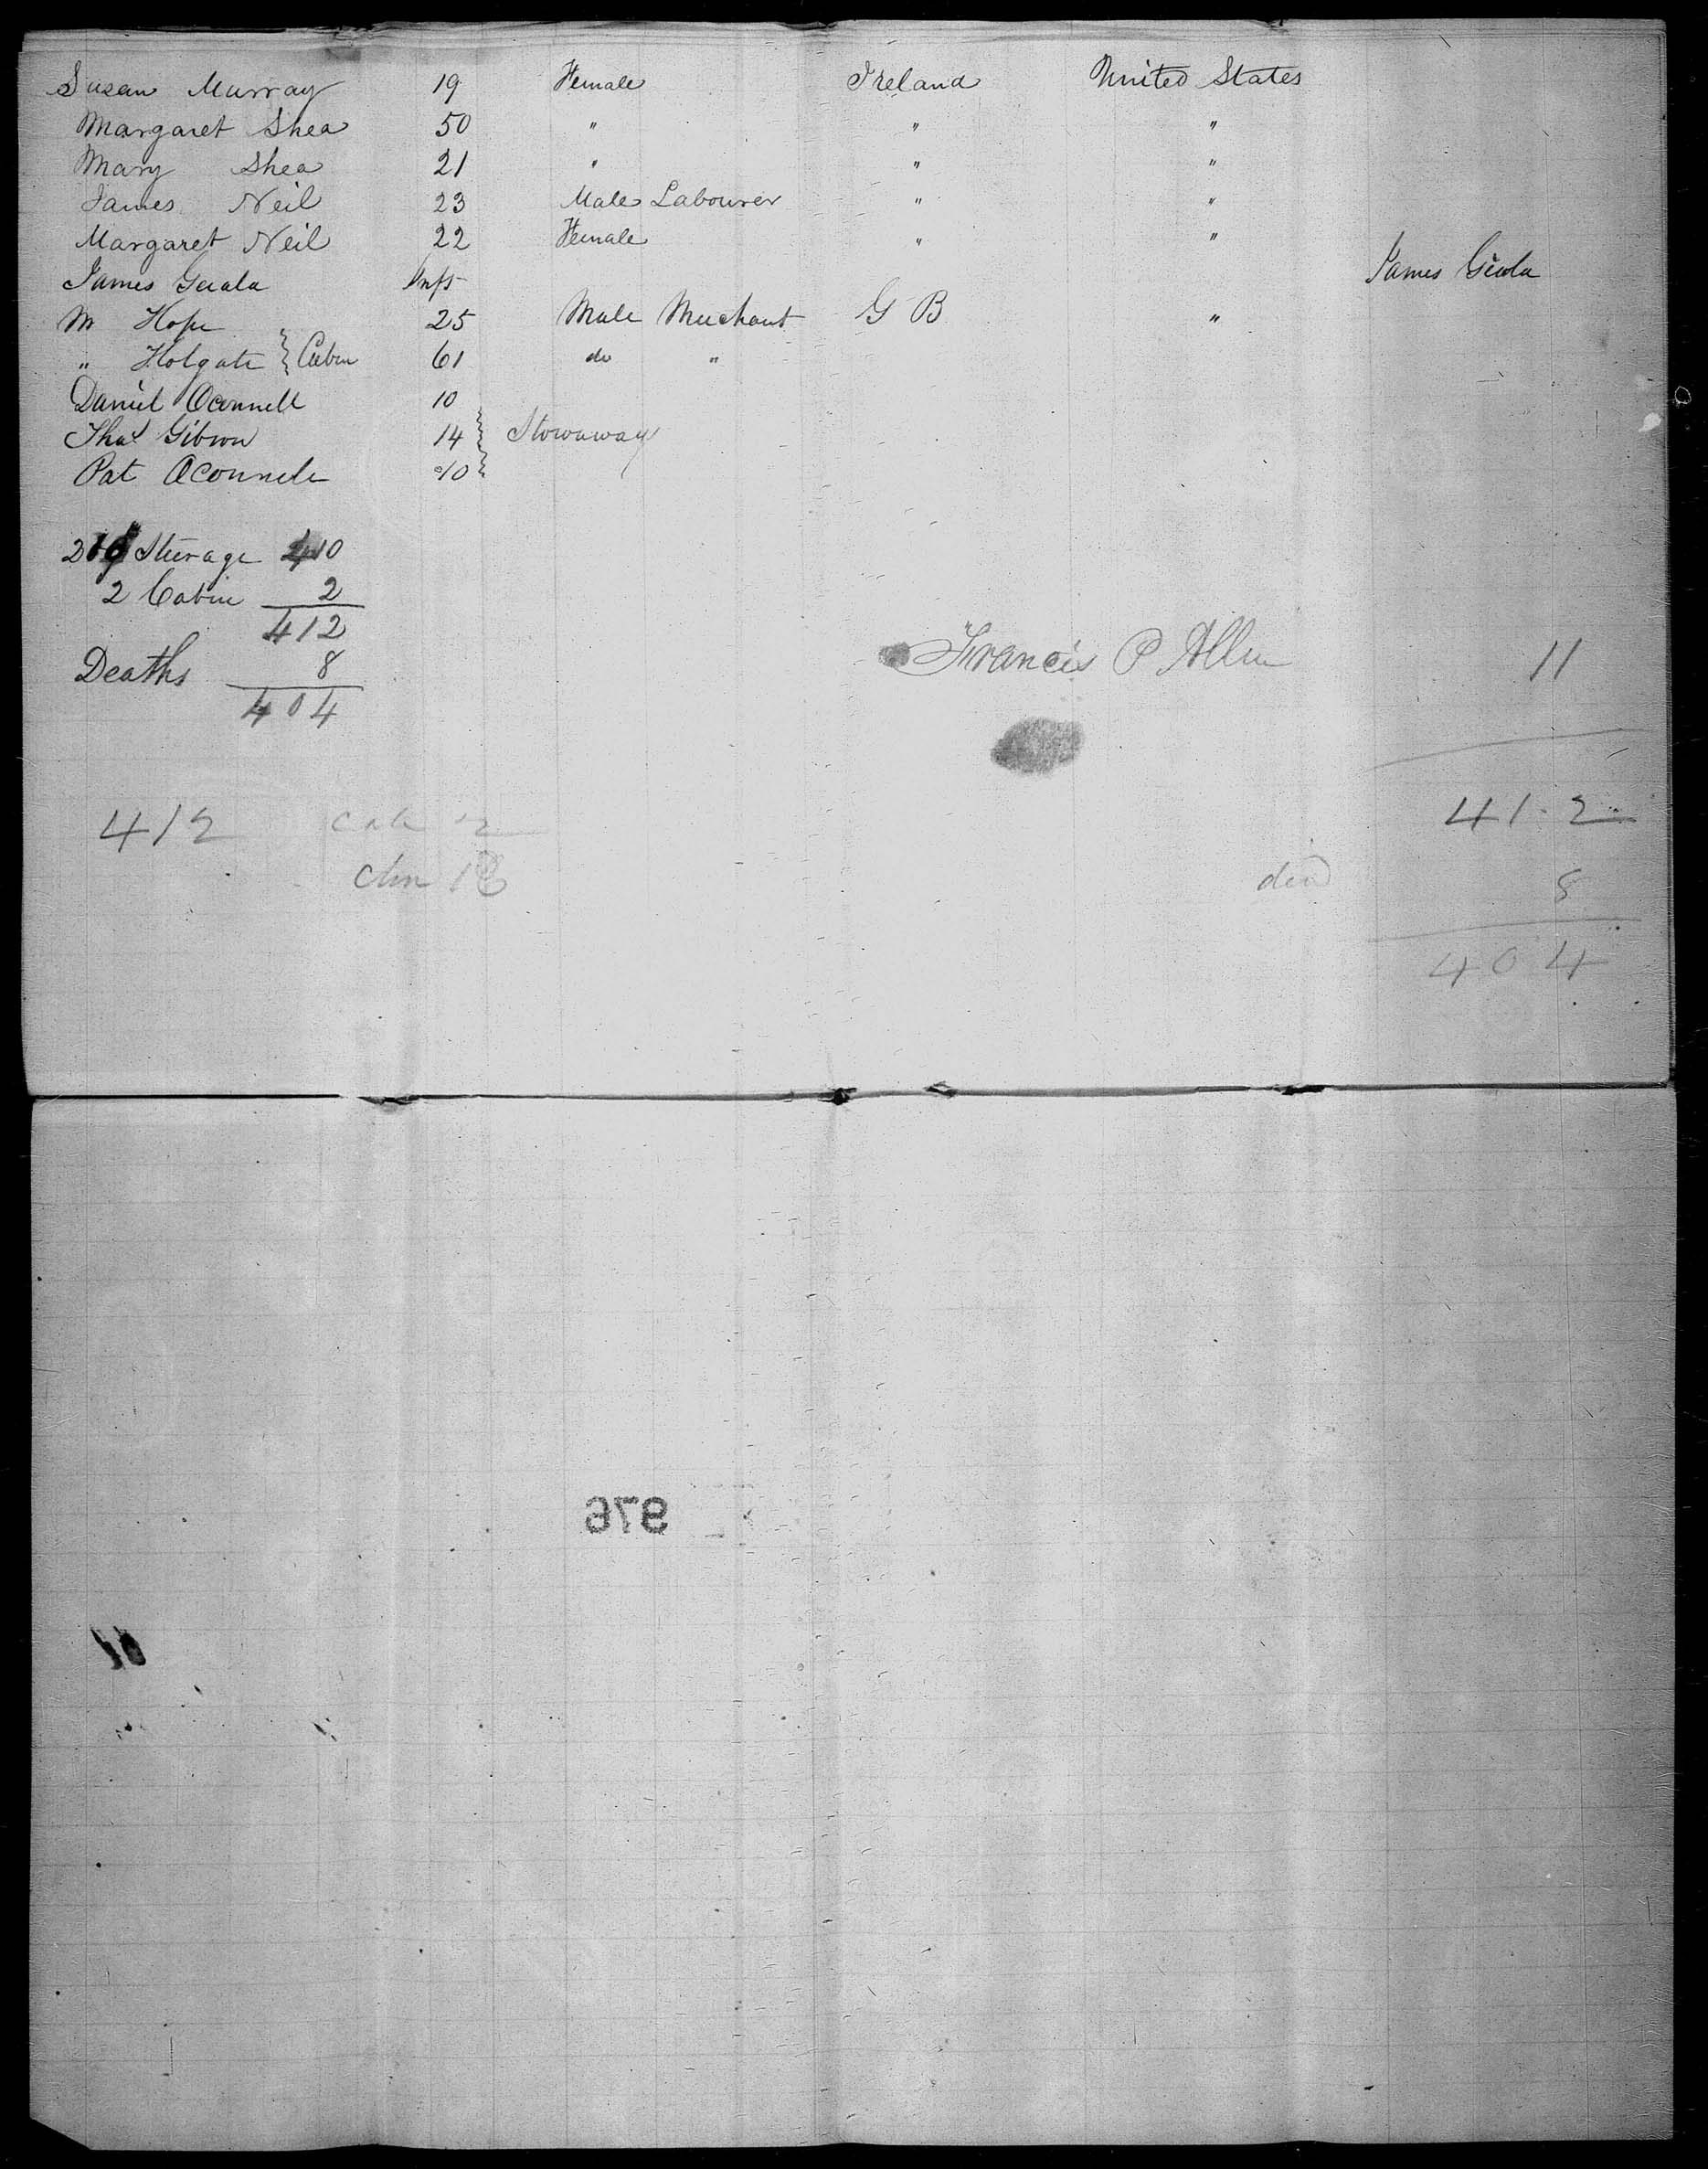 Susan Murray 19 Female Ireland United States
Margaret Shea 50 " " "
Mary Shea 21 " " "
James Neil 23 Male Labourer " "
Margaret Neil 22 Female " "
James Inft James
M Hope 25 Male Merchant G B "
" Holgate } Cabin 61 do "
Daniel Oconnell 10
Thos Gibson 14 } Stowaway
Pat OConnell 10
Steerage 410
2 Cabin 2
412
Deaths 8
404
Francis P Allen
11
412
412
died 8
404
976